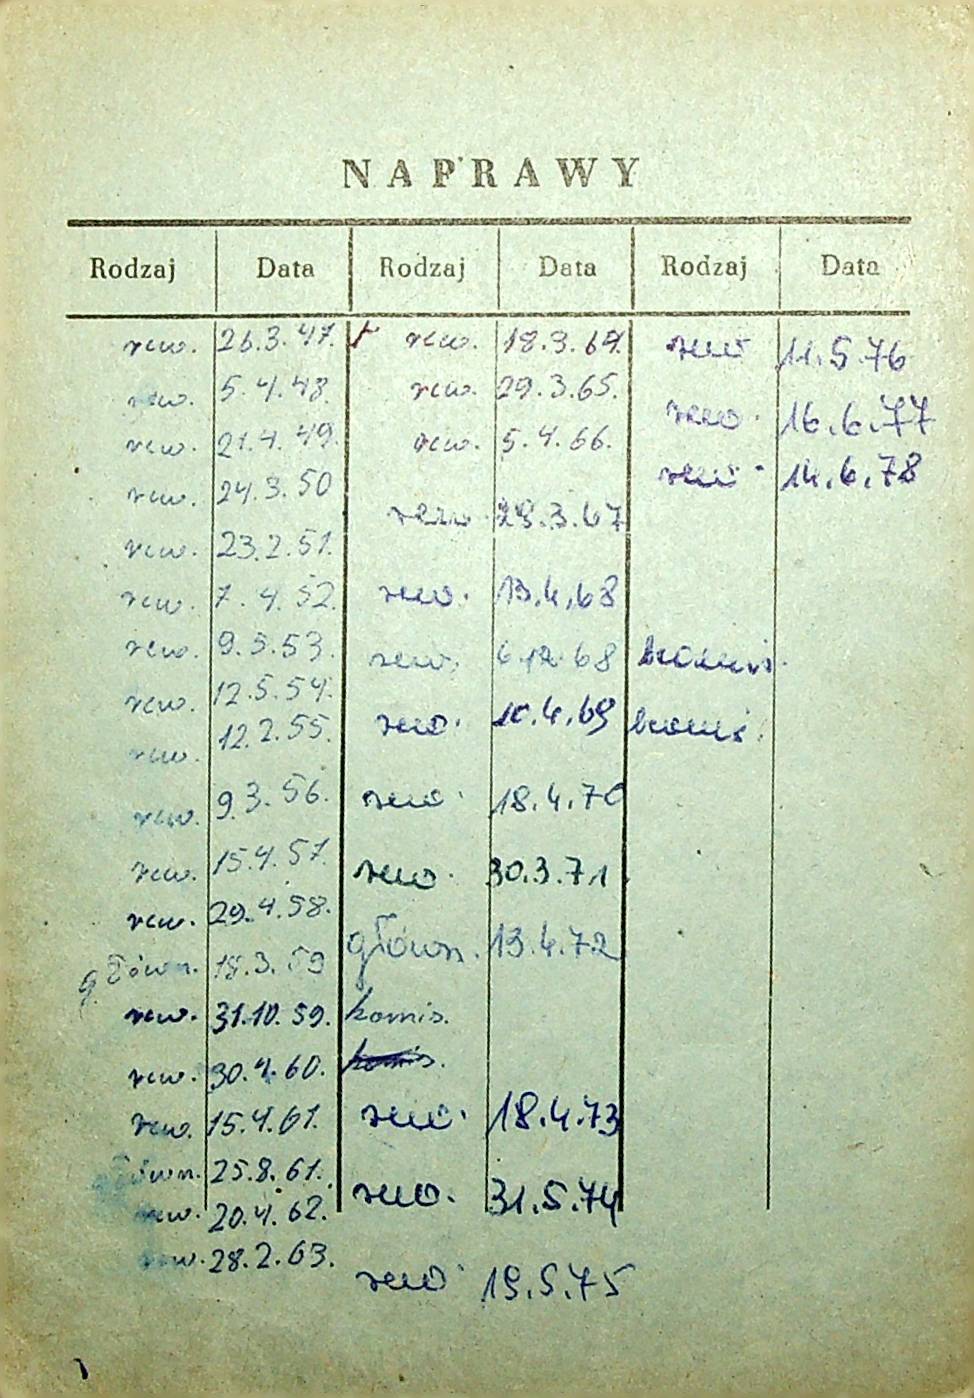 NAPRAWY
Rodzaj Data Rodzaj Data Rodzaj Data
rew. 26.3.47.
rew. 5.4.48.
rew. 21.4.49.
rew. 24.3.50
rew. 23.2.51.
rew. 7.4.52.
rew. 9.5.53.
rew. 12.5.54.
rew. 12.2.55.
rew. 9.3.56.
rew. 15.4.57.
rew. 29.4.58.
główn. 18.3.59
rew. 31.10.59.
rew. 30.4.60.
rew. 15.4.61.
główn. 25.8.61.
rew. 20.4.62.
rew. 28.2.63.
rew. 18.3.64.
rew. 29.3.65.
rew. 5.4.66.
rew. 28.3.67
rew. 13.4.68
rew. 6.12.68 komis.
rew. 10.4.69 komis.
rew. 18.4.70
rew. 30.3.71.
główn. 13.4.72
komis.
komis.
rew. 18.4.73
rew. 31.5.74
rew. 19.5.75
rew 11.5.76
rew. 16.6.77
rew. 14.6.78